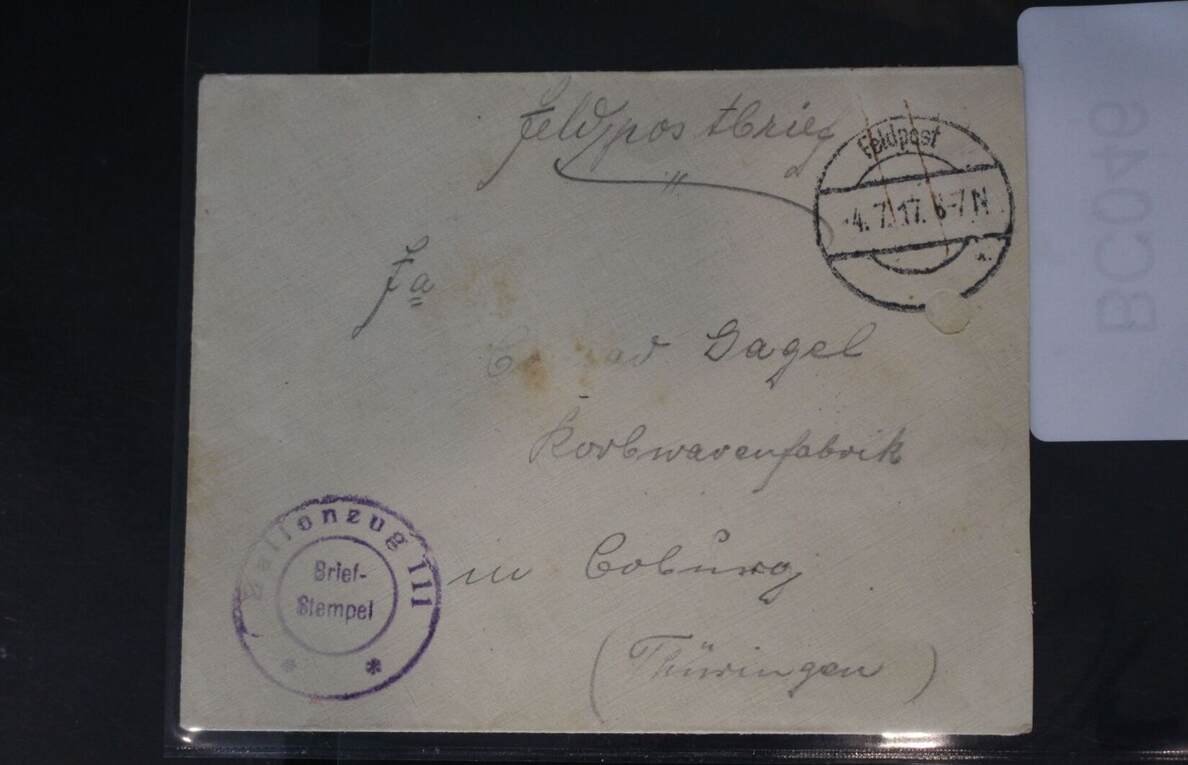 Feldpostbrief
Feldpost
-4. 7. 17. 6-7 N
Fa
Gagel
Korbwarenfabrik
in Coburg
(Thüringen)
Ballonzug III
Brief-
Stempel
BC046